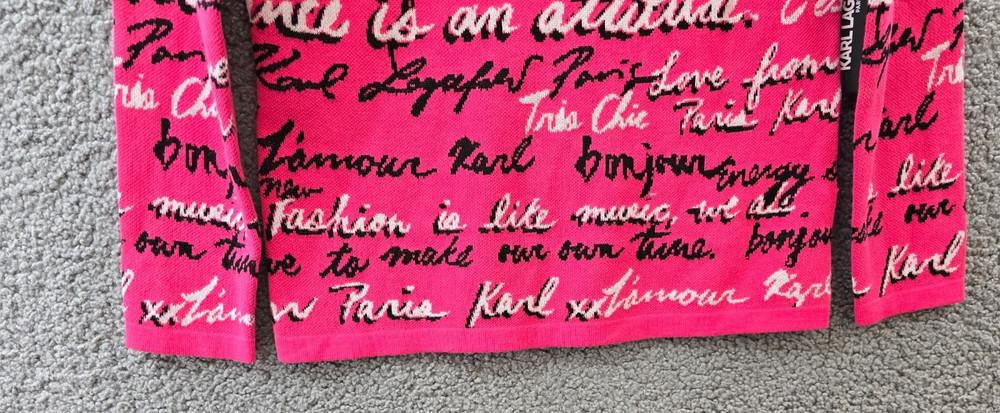 is an attitude.
Paris
Karl Lagerfeld Paris Love from
Très Chic Paris Karl
KARL LAG
PAR
bonj L'amour Karl bonjour Energy
new
music, Fashion is like music, we all. like
own tune to make our own tune. bonjou our
xx L'am Paris Karl xx L'amour Karl Karl